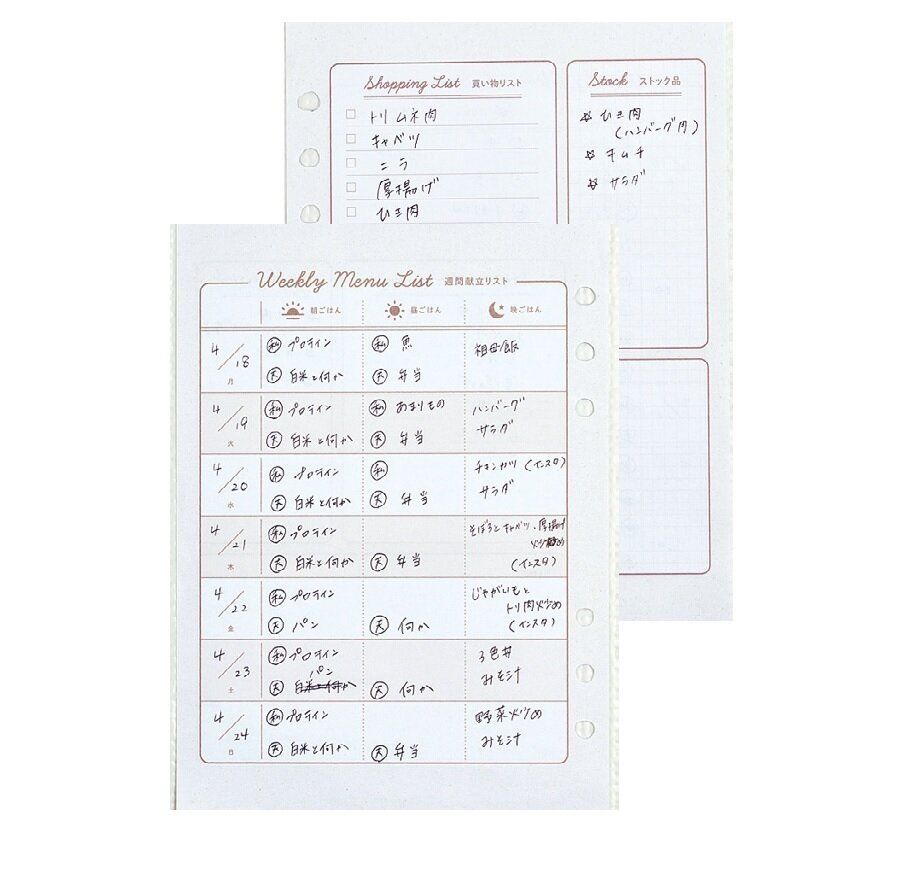 Shopping List 買い物リスト
トリムネ肉
キャベツ
ニラ
厚揚げ
ひき肉
Stock ストック品
☆ ひき肉
(ハンバーグ用)
☆ キムチ
☆ サラダ
Weekly Menu List 週間献立リスト
朝ごはん 昼ごはん 晩ごはん
4/18 月
私 プロテイン
夫 白米と何か
私 魚
夫 弁当
祖母飯
4/19 火
私 プロテイン
夫 白米と何か
私 あまりもの
夫 弁当
ハンバーグ
サラダ
4/20 水
私 プロテイン
夫 白米と何か
私
夫 弁当
チキンカツ (インスタ)
サラダ
4/21 木
私 プロテイン
夫 白米と何か
夫 弁当
そぼろとキャベツ、厚揚げ
炒め
(インスタ)
4/22 金
私 プロテイン
夫 パン
夫 何か
じゃがいもと
トリ肉炒め
(インスタ)
4/23 土
私 プロテイン
パン
夫 白米と何か
夫 何か
3色丼
みそ汁
4/24 日
私 プロテイン
夫 白米と何か
夫 弁当
野菜炒め
みそ汁